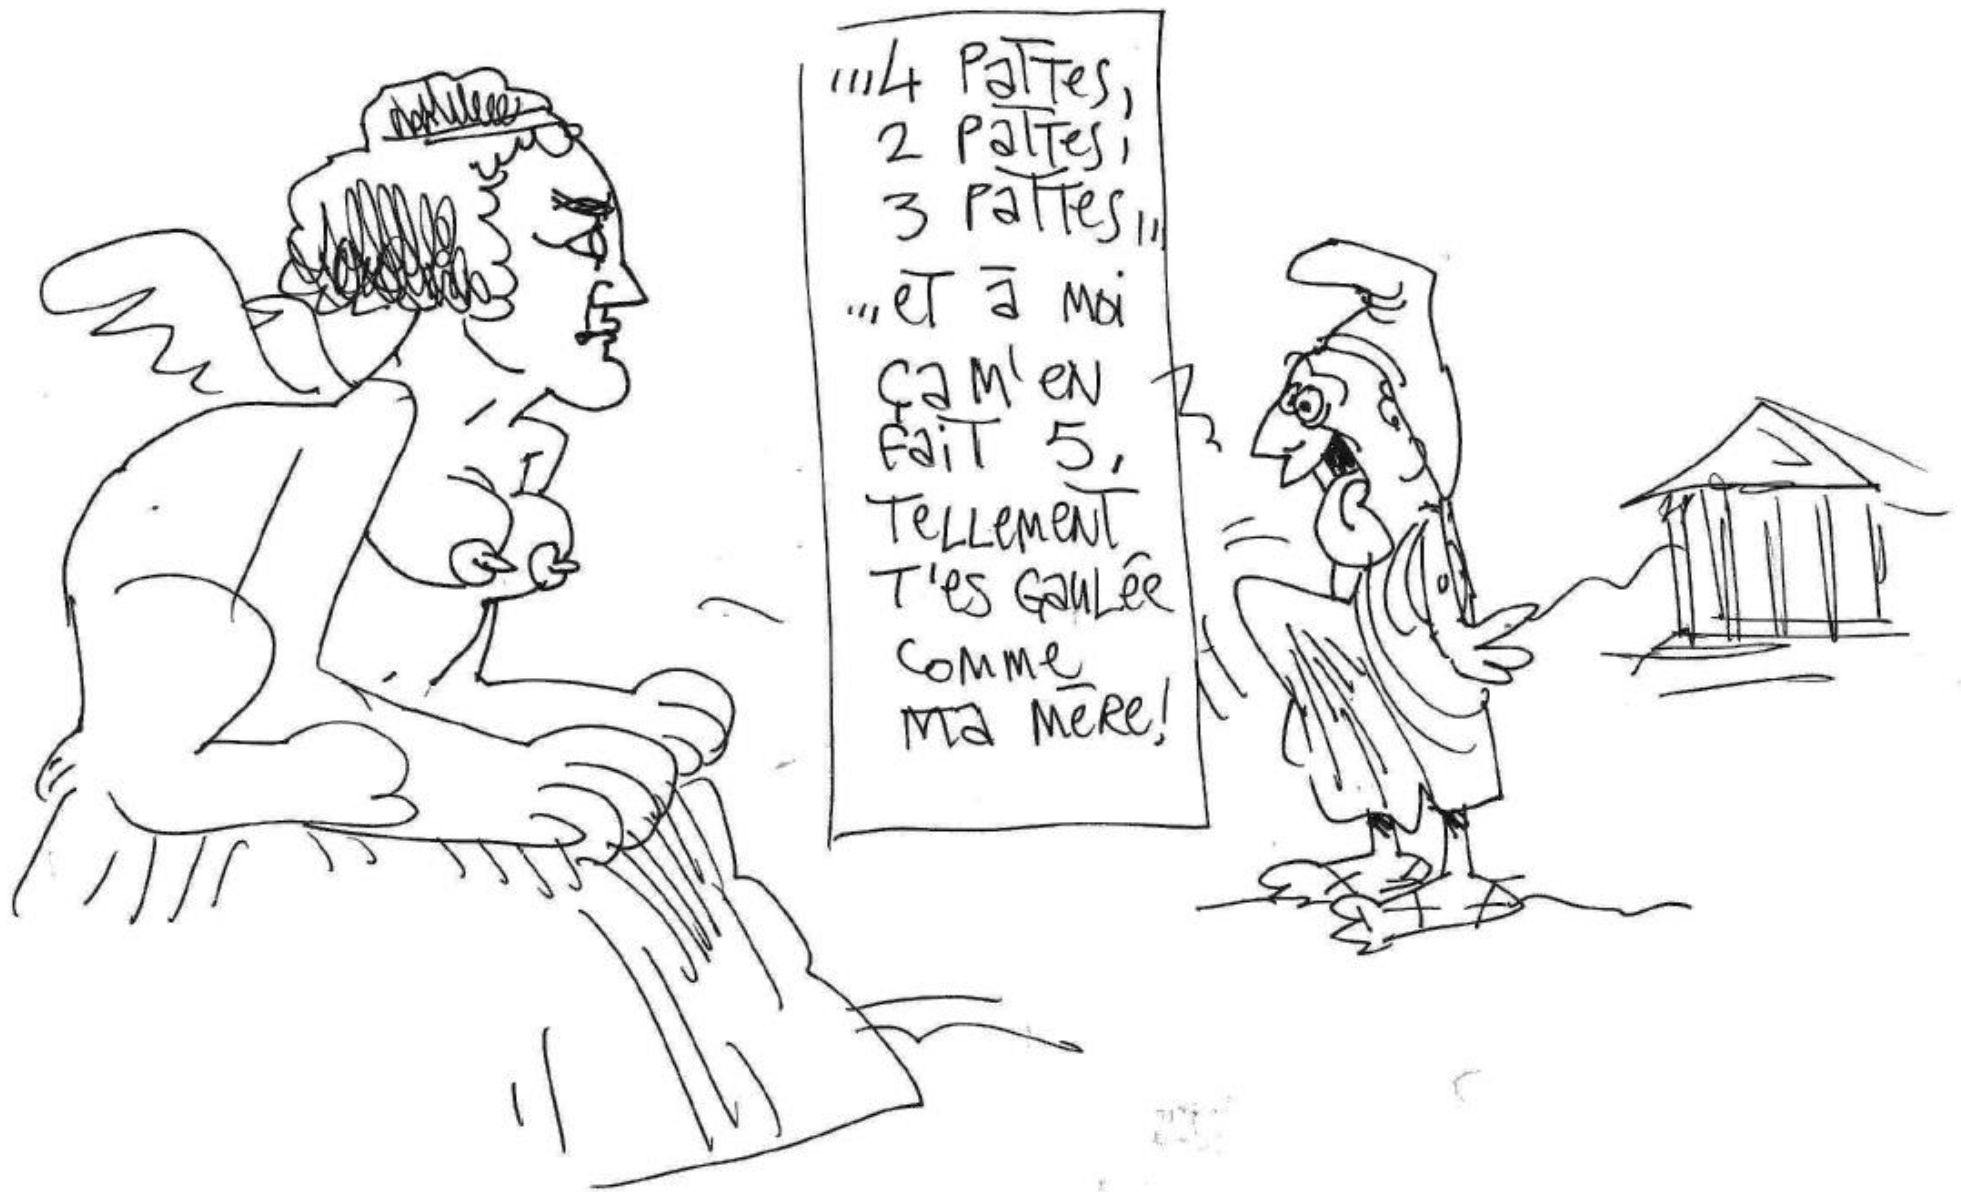 ...4 pattes,
2 pattes,
3 pattes...
...et à moi
ça m'en
fait 5,
tellement
t'es gaulée
comme
ma mère!